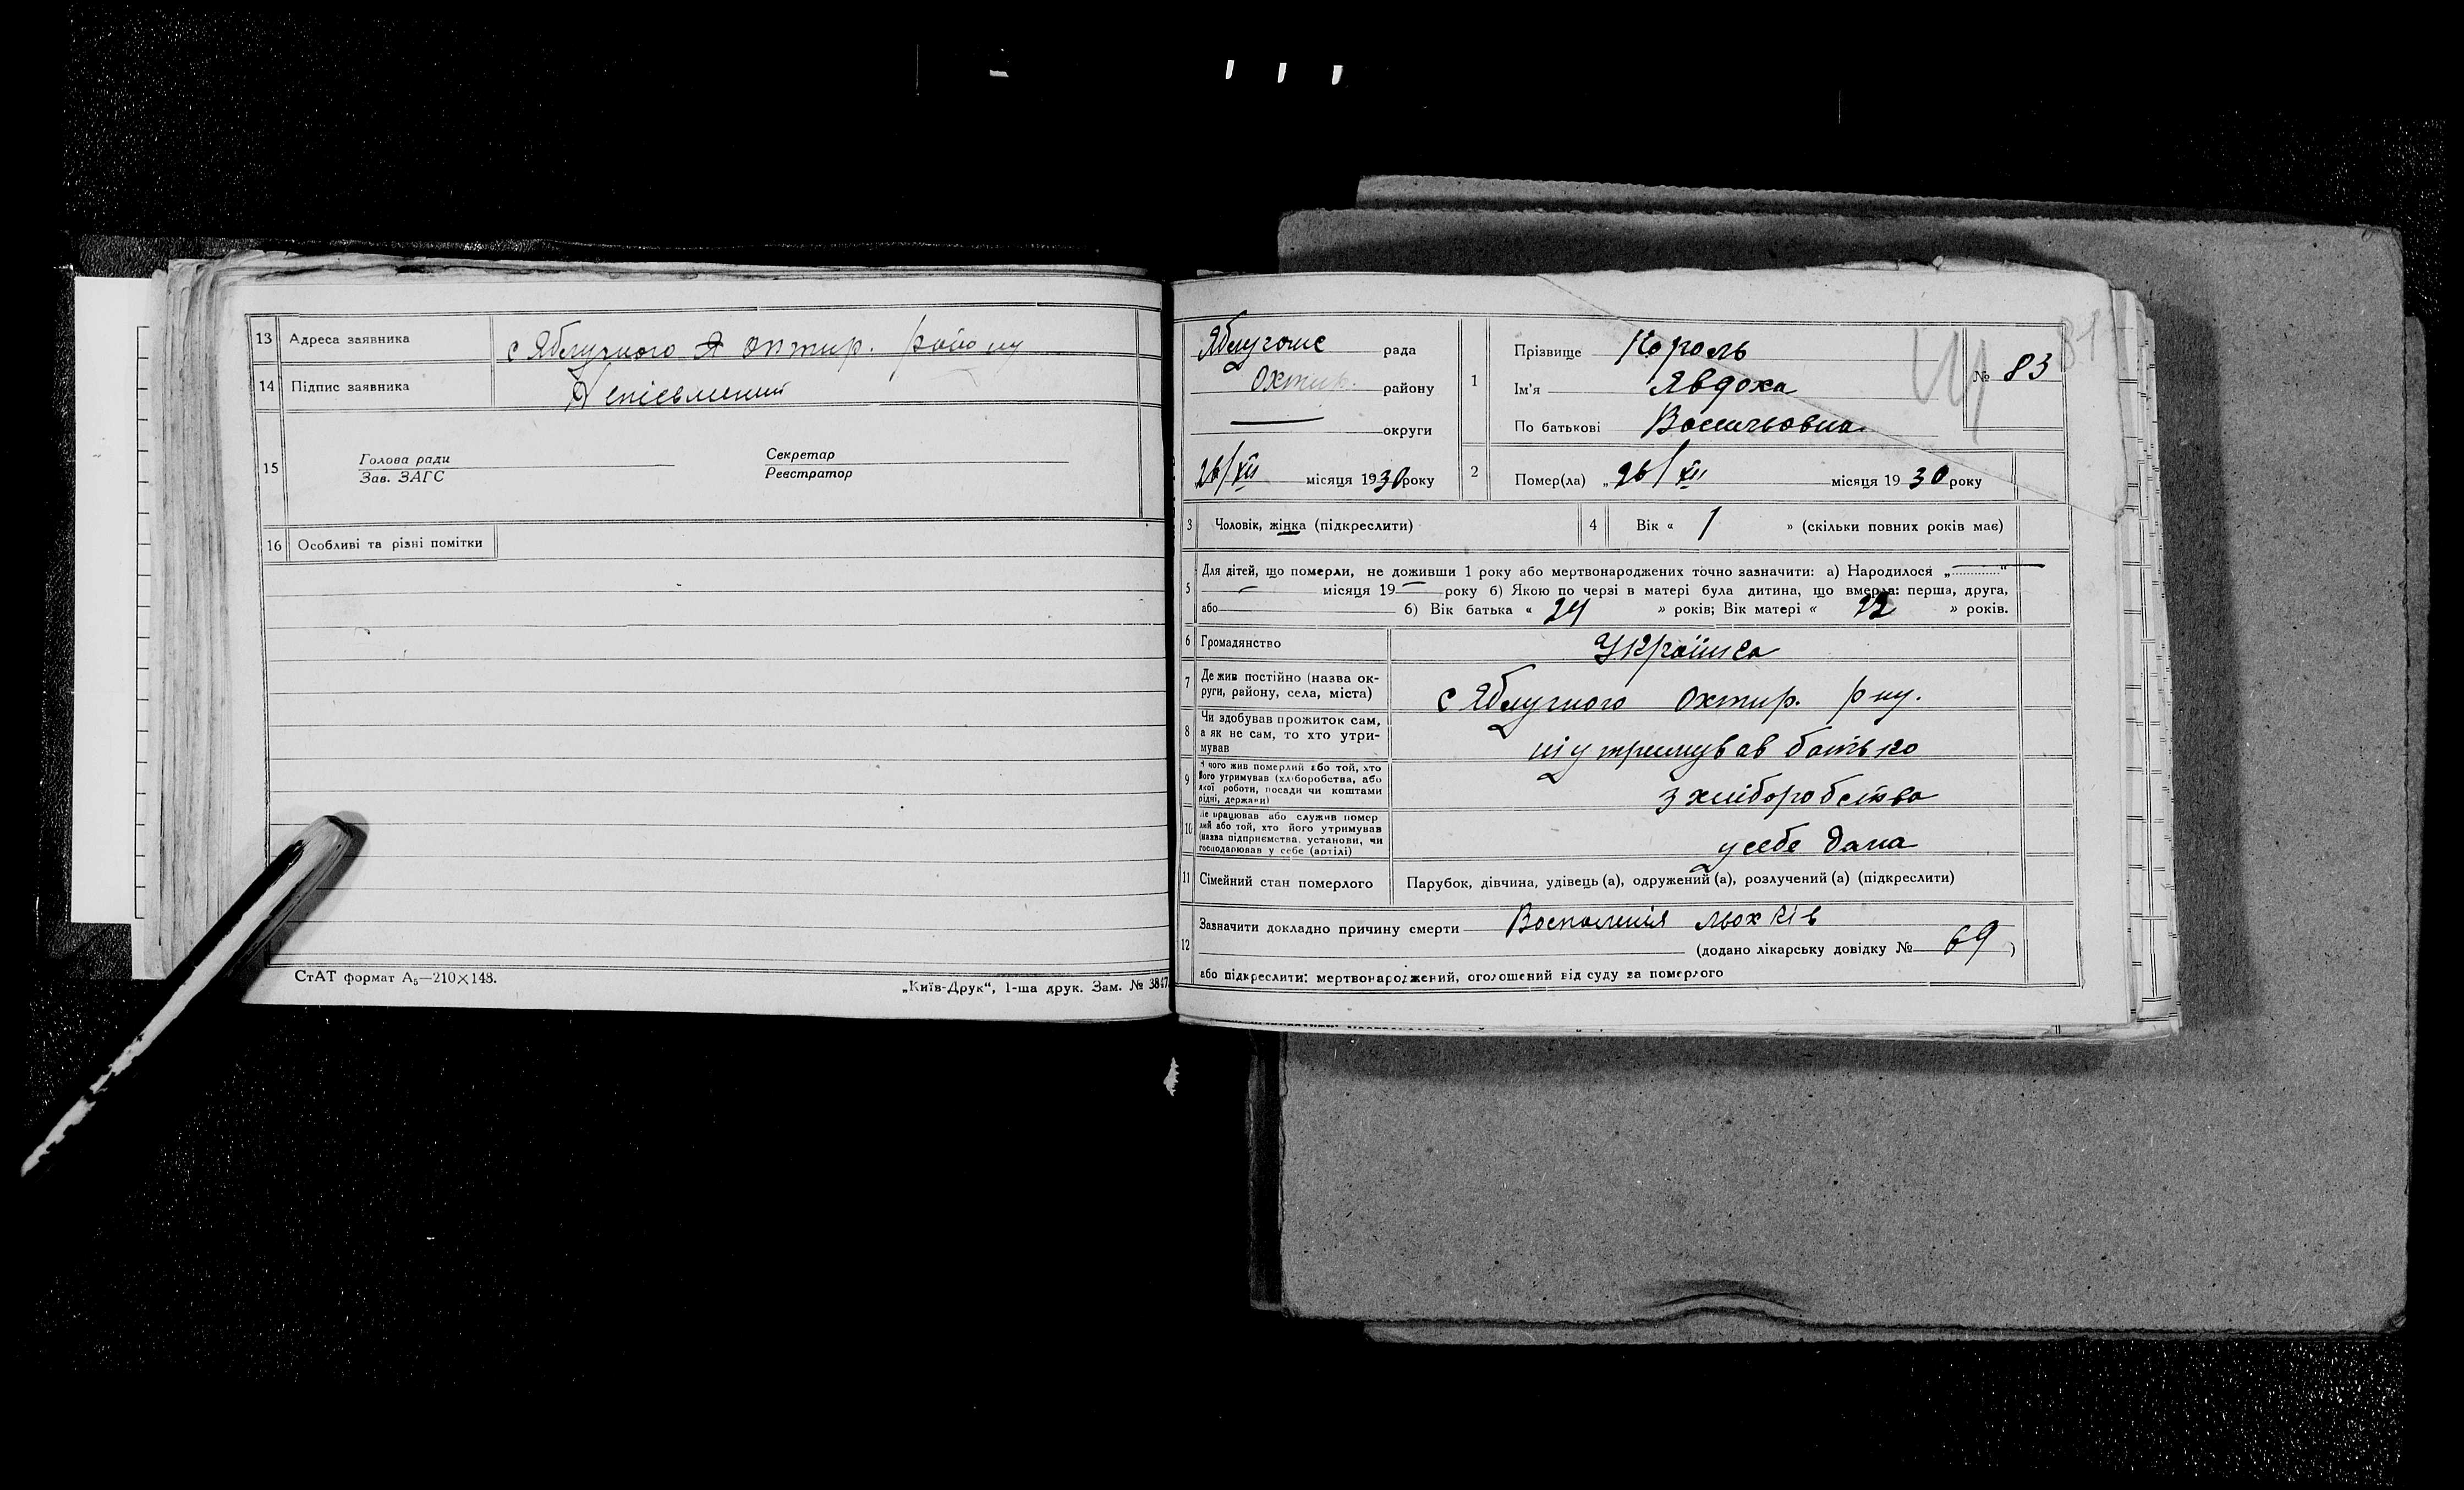 13 Адреса заявника с Яблучного Я охтир. району
14 Підпис заявника Неписьмений
15 Голова ради Секретар
Зав. ЗАГС Реєстратор
16 Особливі та різні помітки
СтАТ формат А₅—210×148.
„Київ-Друк“, 1-ша друк. Зам. № 3847
81
Яблучане рада
Охтир. району
— округи
„26/XII місяця 1930 року
1 Прізвище Король
Ім'я Явдоха
По батькові Васильовна
№ 83
2 Помер(ла) „26/XII місяця 1930 року
3 Чоловік, жінка (підкреслити) 4 Вік « 1 » (скільки повних років має)
5 Для дітей, що померли, не доживши 1 року або мертвонароджених точно зазначити: а) Народилося „—“
— місяця 19— року б) Якою по черзі в матері була дитина, що вмерла: перша, друга,
або б) Вік батька « 24 » років; Вік матері « 22 » років.
6 Громадянство Українка
7 Де жив постійно (назва ок-
руги, району, села, міста) с Яблучного Охтир. рну.
8 Чи здобував прожиток сам,
а як не сам, то хто утри-
мував ні утримував батько
9 З чого жив померлий або той, хто
його утримував (хліборобства, або
якої роботи, посади чи коштами
рідні, держави) З хліборобства
10 Де працював або служив помер
лий або той, хто його утримував
(назва підприємства, установи, чи
господарював у себе (артілі) у себе дома
11 Сімейний стан померлого Парубок, дівчина, удівець (а), одружений (а), розлучений (а) (підкреслити)
12 Зазначити докладно причину смерти Воспаления льохків
(додано лікарську довідку № 69)
або підкреслити: мертвонароджений, оголошений від суду за померлого